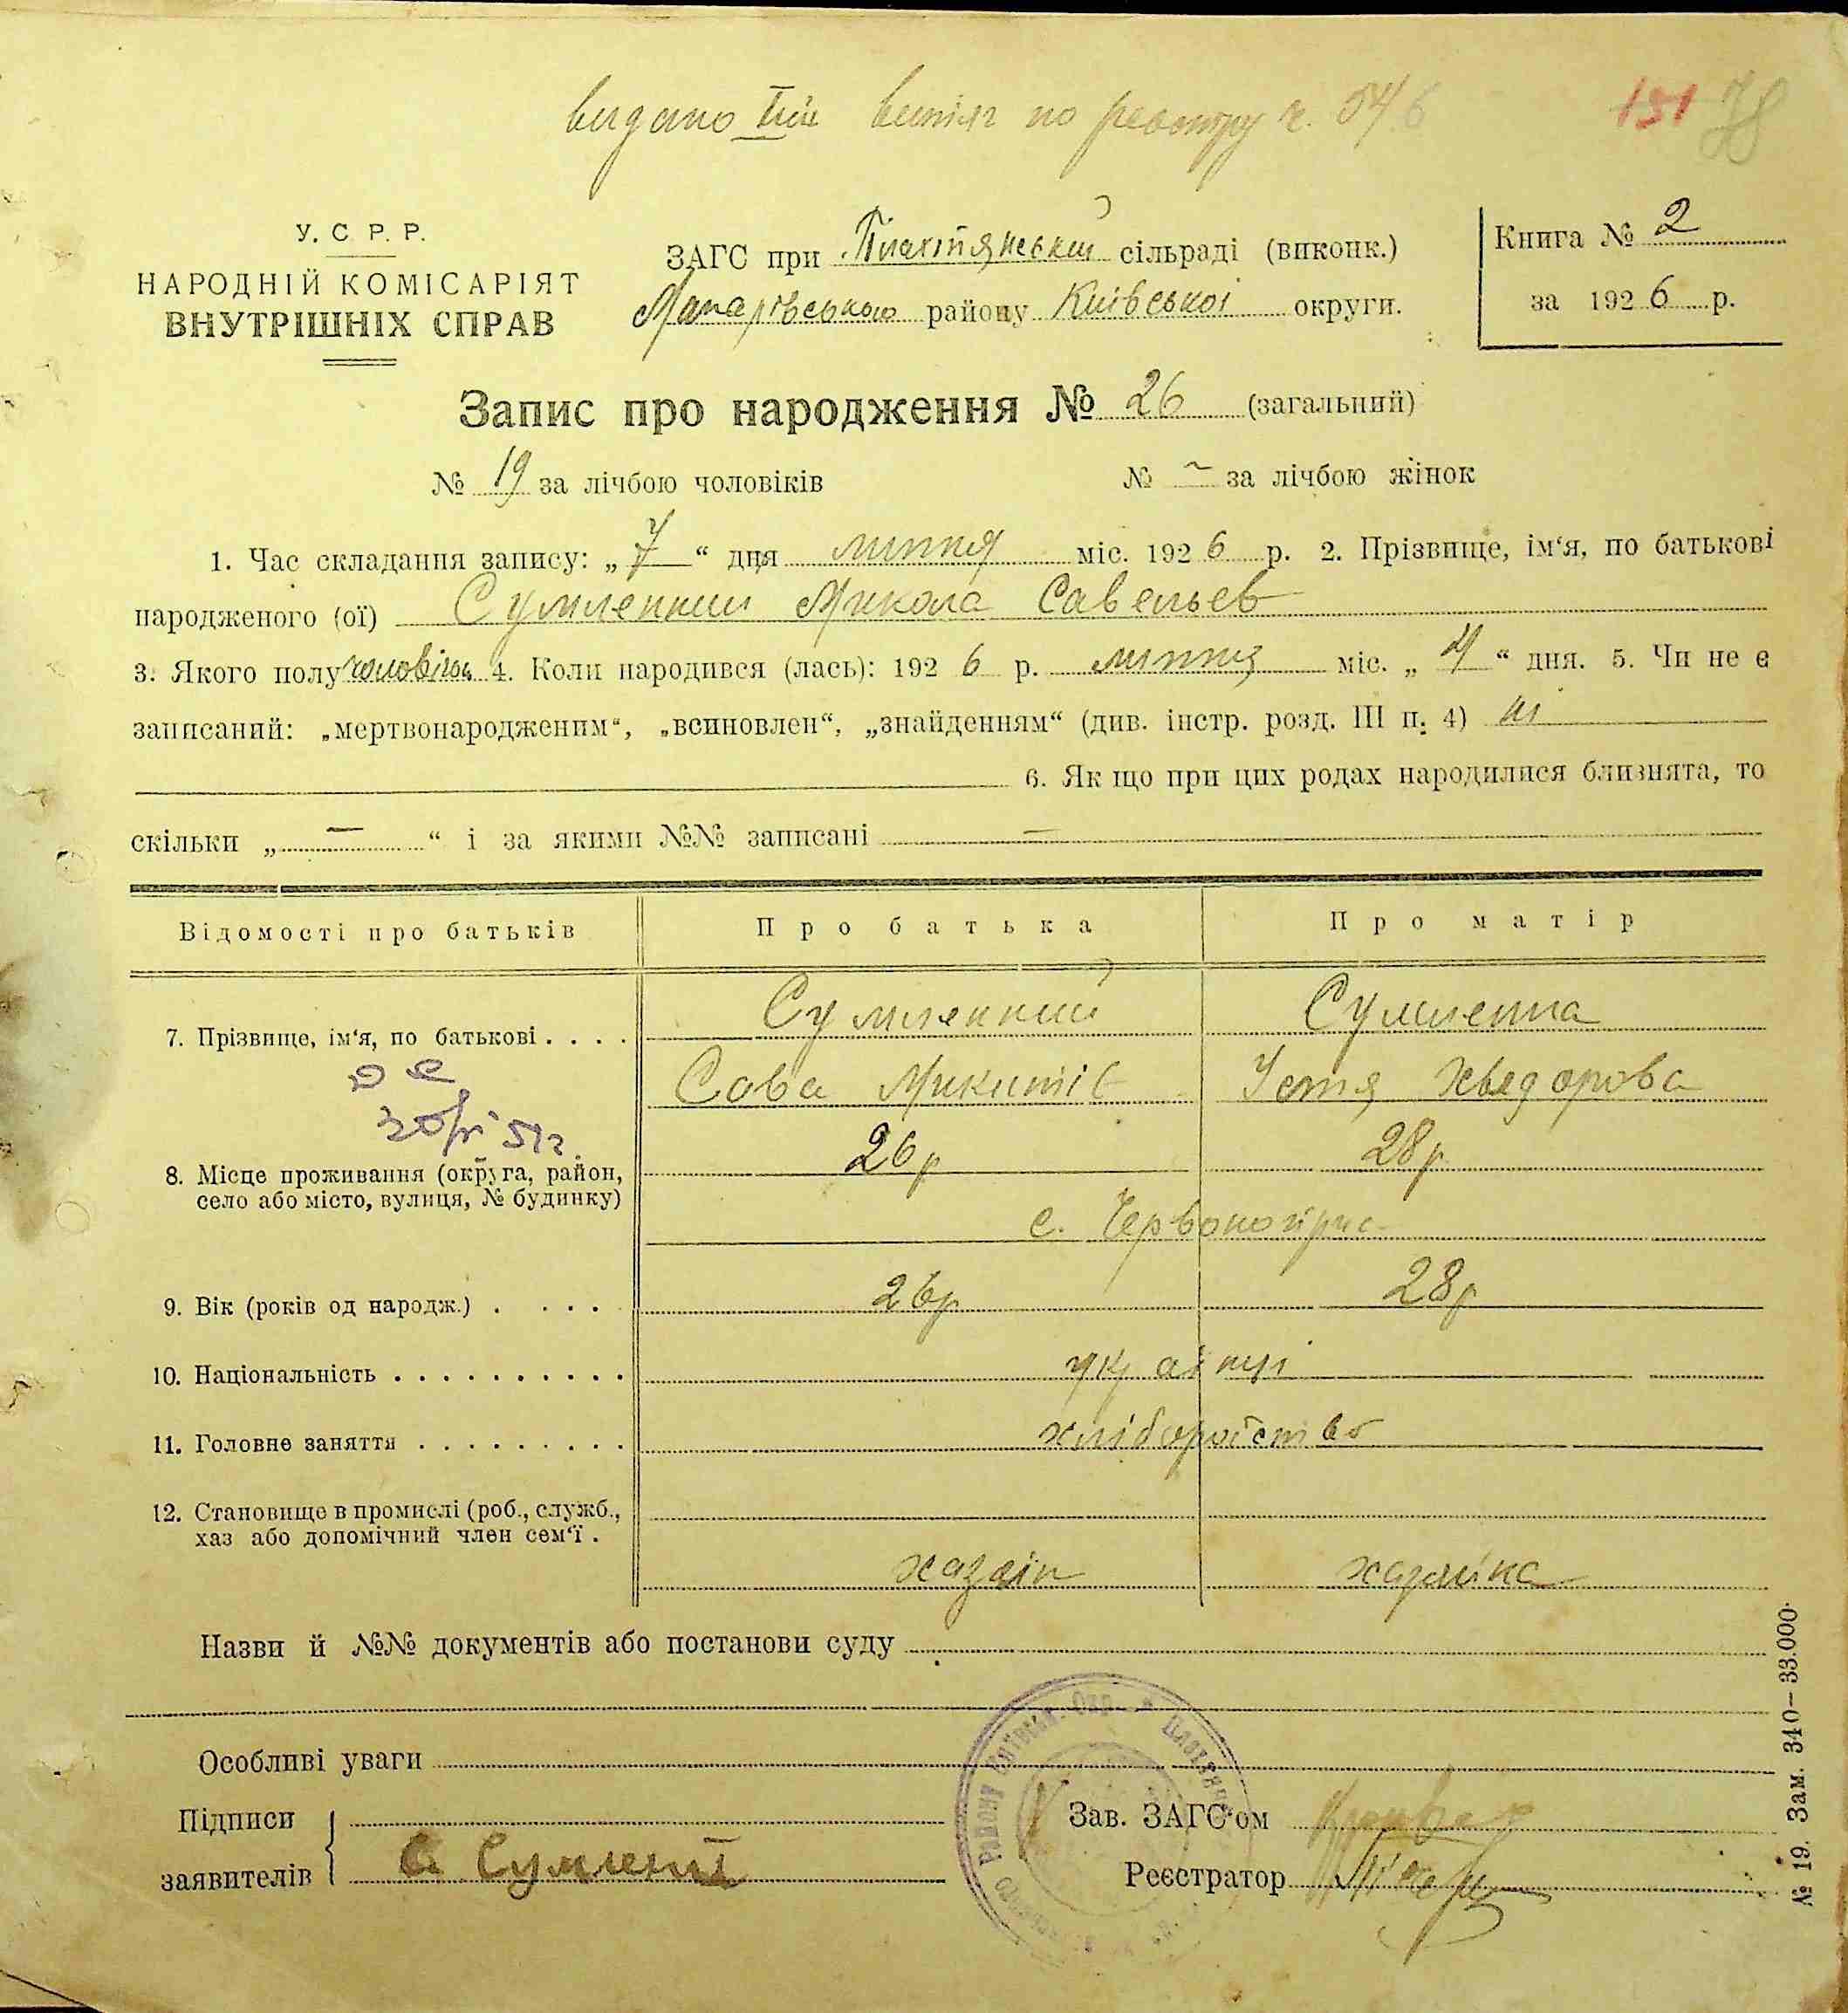 видано ІІй витяг по реєстру ч. 546
151 78
У. С. Р. Р.
НАРОДНІЙ КОМІСАРІЯТ
ВНУТРІШНІХ СПРАВ
ЗАГС при Плахтянській сільраді (виконк.)
Макарівського району Київської округи.
Книга № 2
за 1926 р.
Запис про народження № 26 (загальний)
№ 19 за лічбою чоловіків № ~ за лічбою жінок
1. Час складання запису: „7“ дня липня міс. 1926 р. 2. Прізвище, ім‘я, по батькові
народженого (ої) Сумленний Микола Савельев
3. Якого полу чоловічої 4. Коли народився (лась): 1926 р. липня міс. „4“ дня. 5. Чи не є
записаний: „мертвонародженим“, „всиновлен“, „знайденням“ (див. інстр. розд. III п. 4) ні
6. Як що при цих родах народилися близнята, то
скільки „—“ і за якими №№ записані —
Відомості про батьків Про батька Про матір
7. Прізвище, ім‘я, по батькові . . . .
Сумленний Сумленна
Сава Микитів Устя Хведорова
26р 28р
8. Місце проживання (округа, район,
село або місто, вулиця, № будинку)
с. Червоногірка
9. Вік (років од народж.) . . . . 26р 28р
10. Національність . . . . . . . . . . українці
11. Головне заняття . . . . . . . . . хліборобство
12. Становище в промислі (роб., служб.,
хаз або допомічний член сем‘ї .
хазяїн хазяйка
Назви й №№ документів або постанови суду
Особливі уваги
Підписи
заявителів С Сумлений
Зав. ЗАГС‘ом
Реєстратор
району Київськ. Окр.
№ 19. Зам. 340—33.000